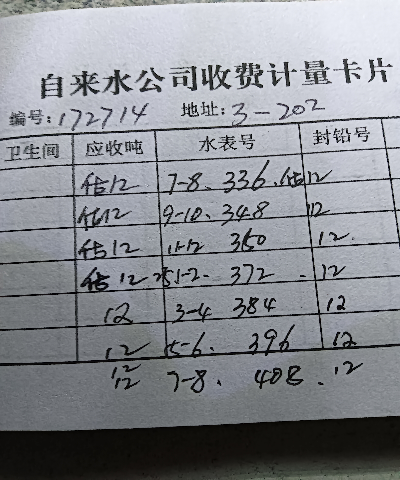 自来水公司收费计量卡片
编号:172714 地址:3-202
卫生间 应收吨 水表号 封铅号
估12 7-8. 336. 估12
估12 9-10. 348 12
估12 11-12 360 12.
估12 25 1-2. 372 . 12
12 3-4 384 12
12 5-6. 396 12
12 7-8. 408. 12